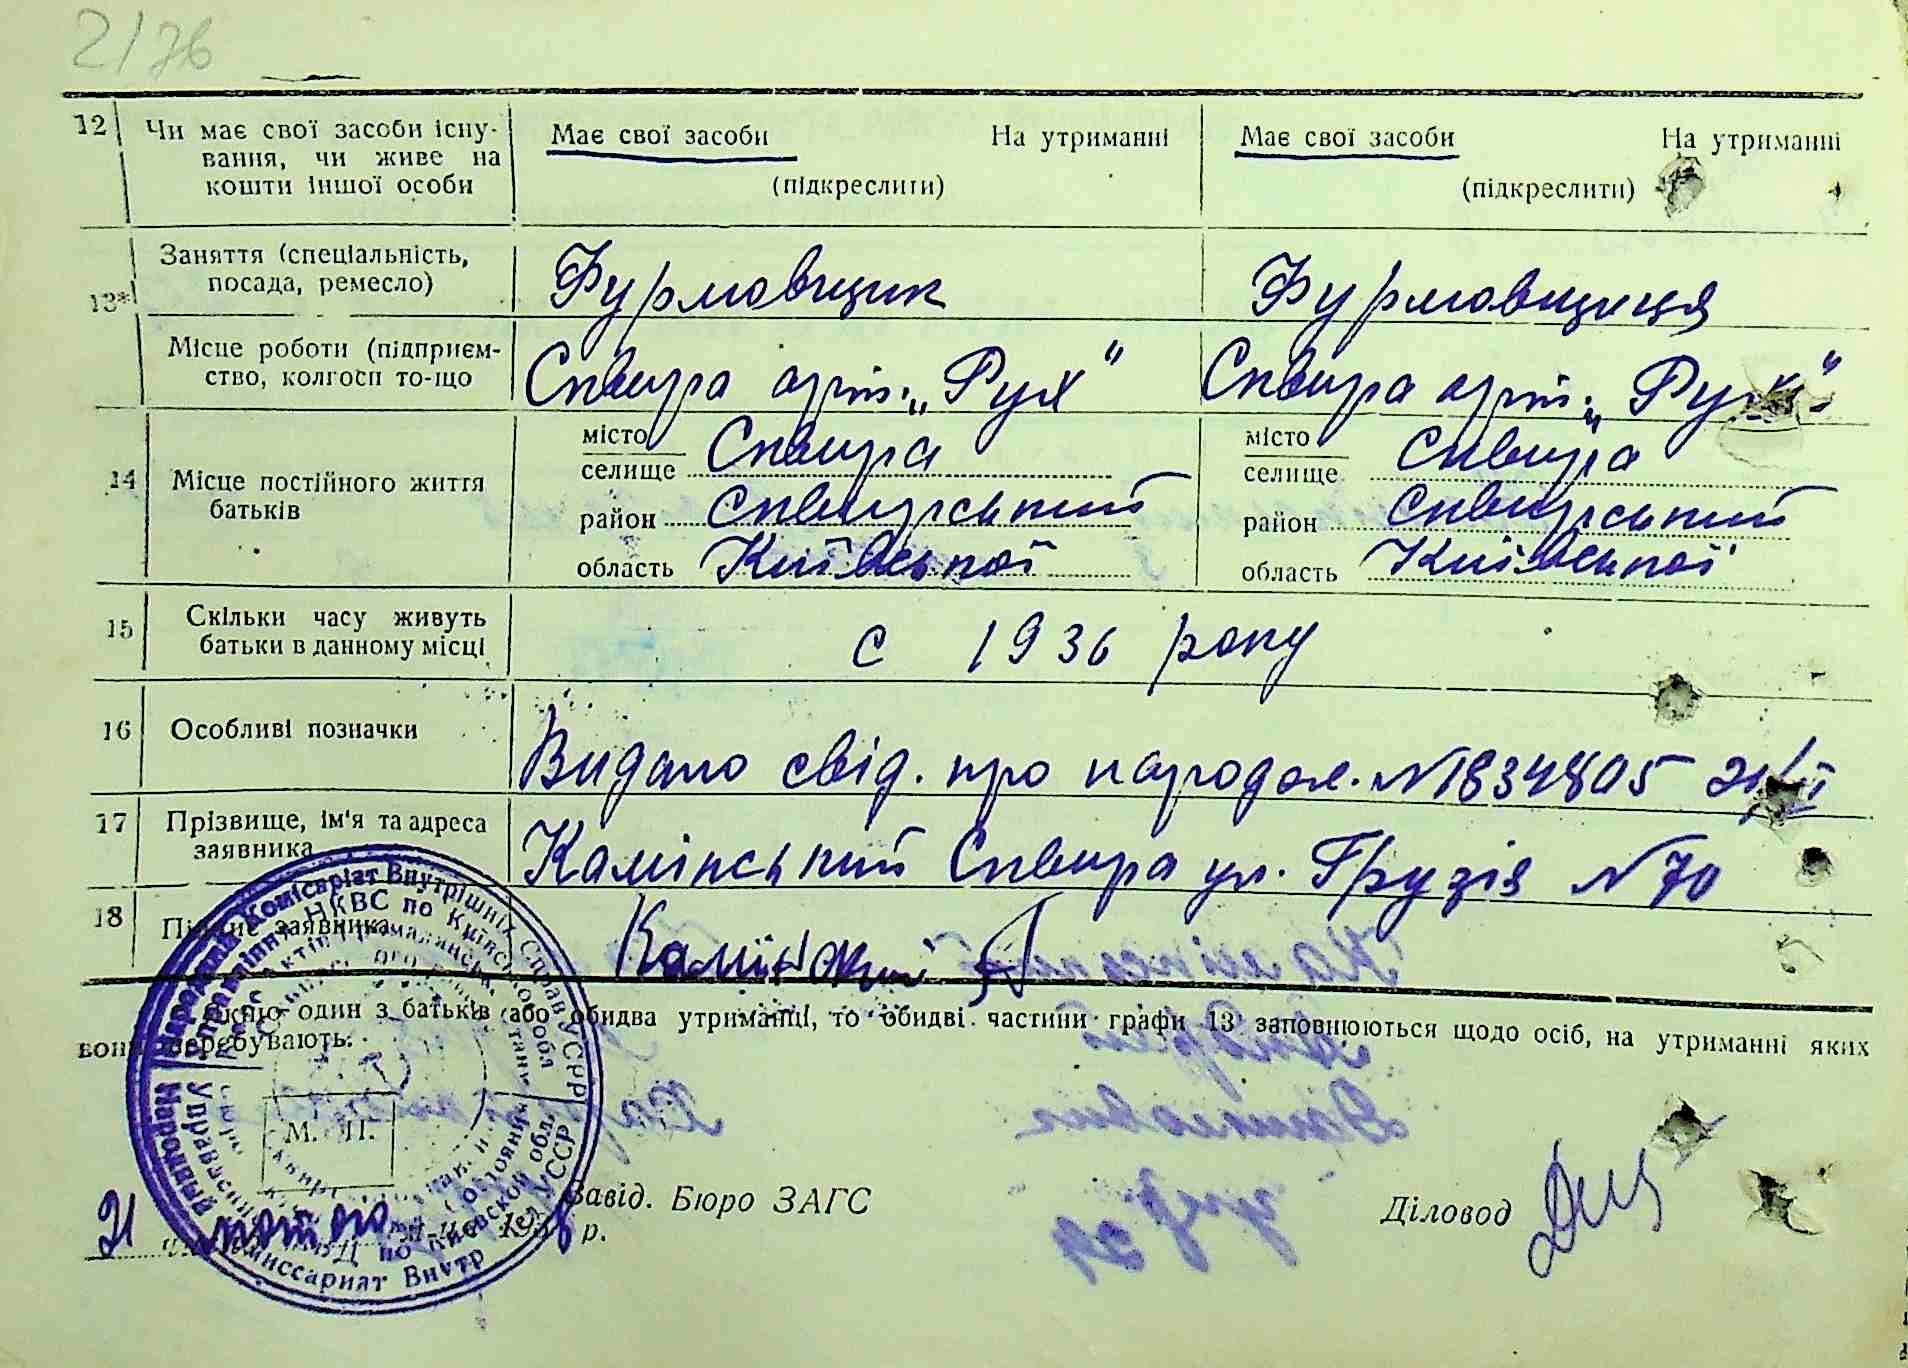 2/76
12 Чи має свої засоби існу-
вання, чи живе на
кошти іншої особи
Має свої засоби На утриманні
(підкреслити)
Має свої засоби На утриманні
(підкреслити)
13*
Заняття (спеціальність,
посада, ремесло)
Фурмовщик
Фурмовщиця
Місце роботи (підприєм-
ство, колгосп то-що
Сквира арт. „Рух"
Сквира арт. „Рух"
14 Місце постійного життя
батьків
місто
селище Сквира
район Сквирський
область Київської
місто
селище Сквира
район Сквирський
область Київської
15 Скільки часу живуть
батьки в данному місці
с 1936 року
16 Особливі позначки
Видано свід. про народж. №1834805 21/II
17 Прізвище, ім'я та адреса
заявника
Камінський Сквира ул. Грузія №70
18 Підпис заявника
Камінский А
якщо один з батьків (або обидва утриманці, то обидві частини графи 13 заповнюються щодо осіб, на утриманні яких
вони перебувають.
Народний Комісаріат Внутрішніх Справ УСРР
Управління НКВС по Київській обл
М. П.
21 лютого 193 р.
Завід. Бюро ЗАГС
Діловод